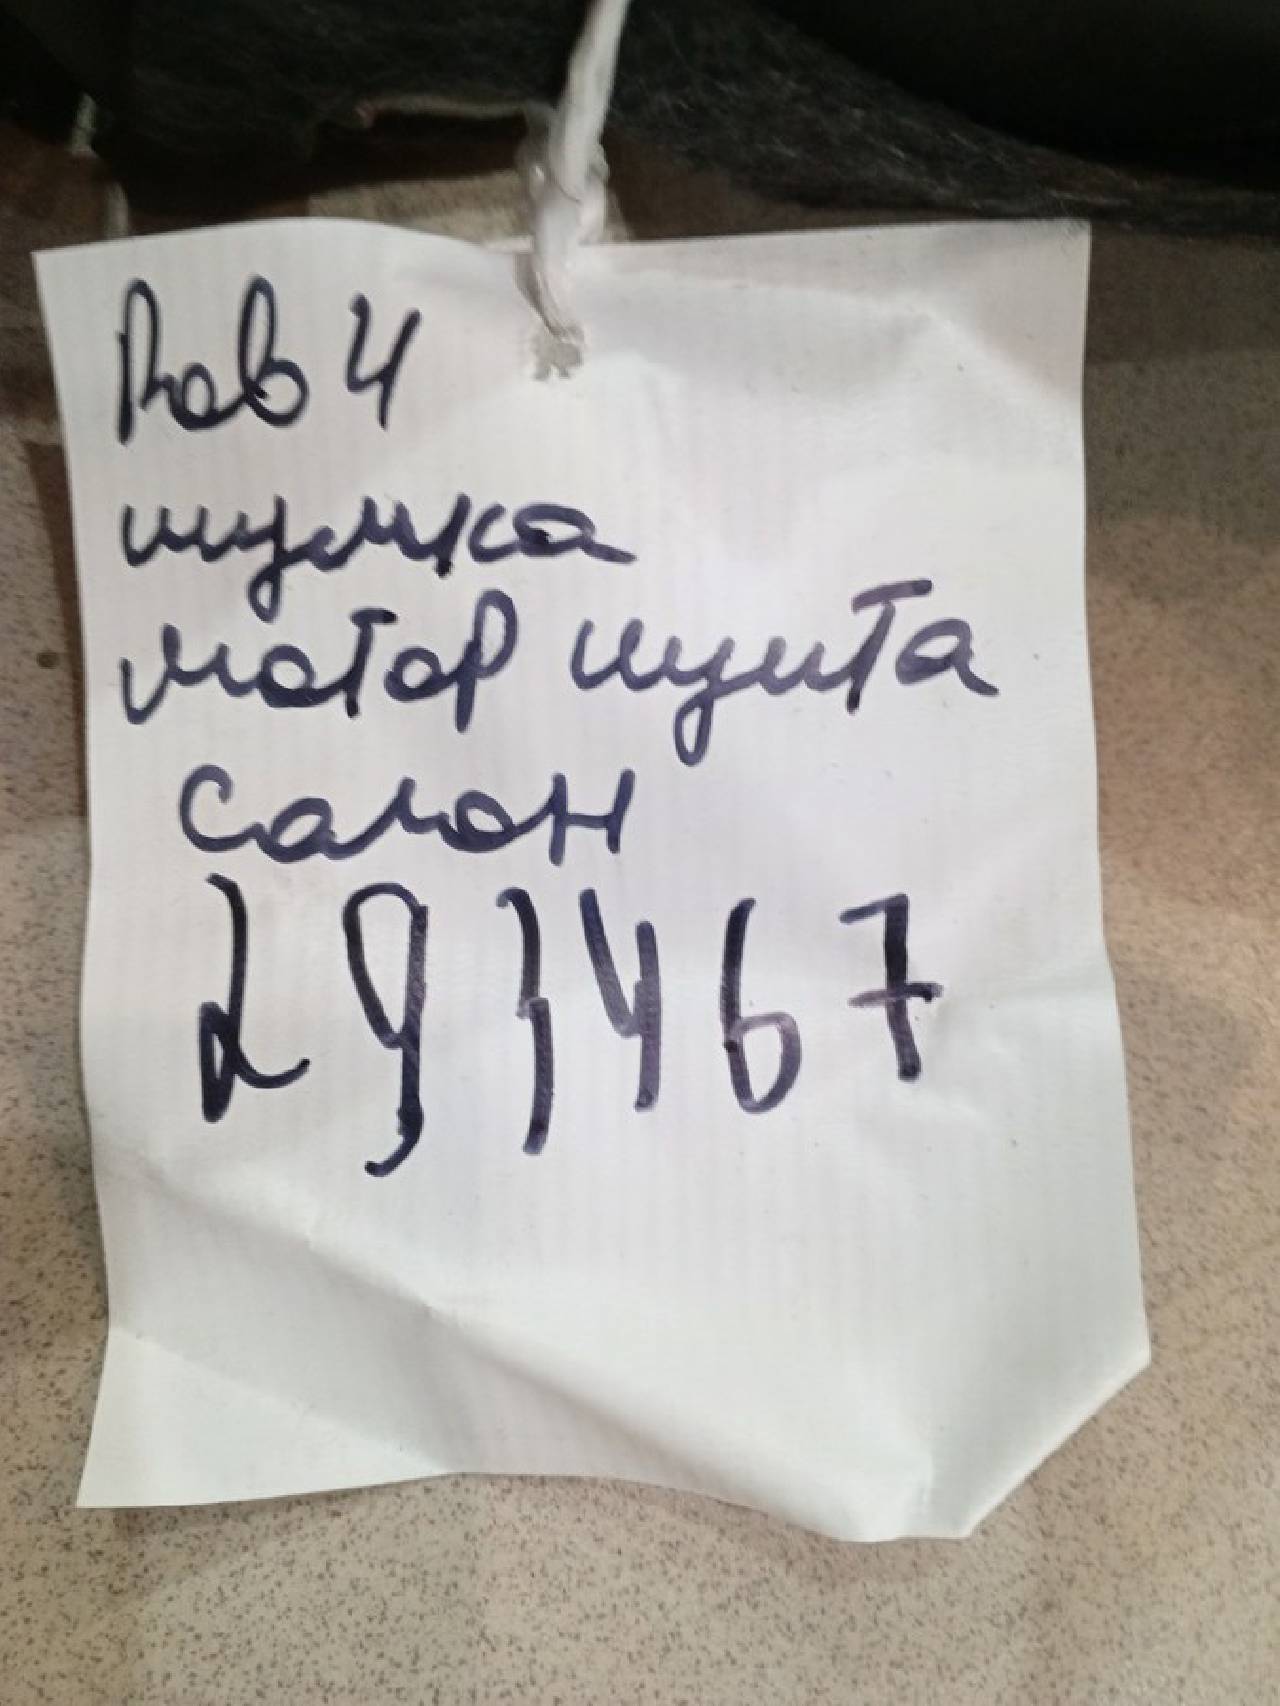 Rav 4
шумка
мотор щита
салон
293467